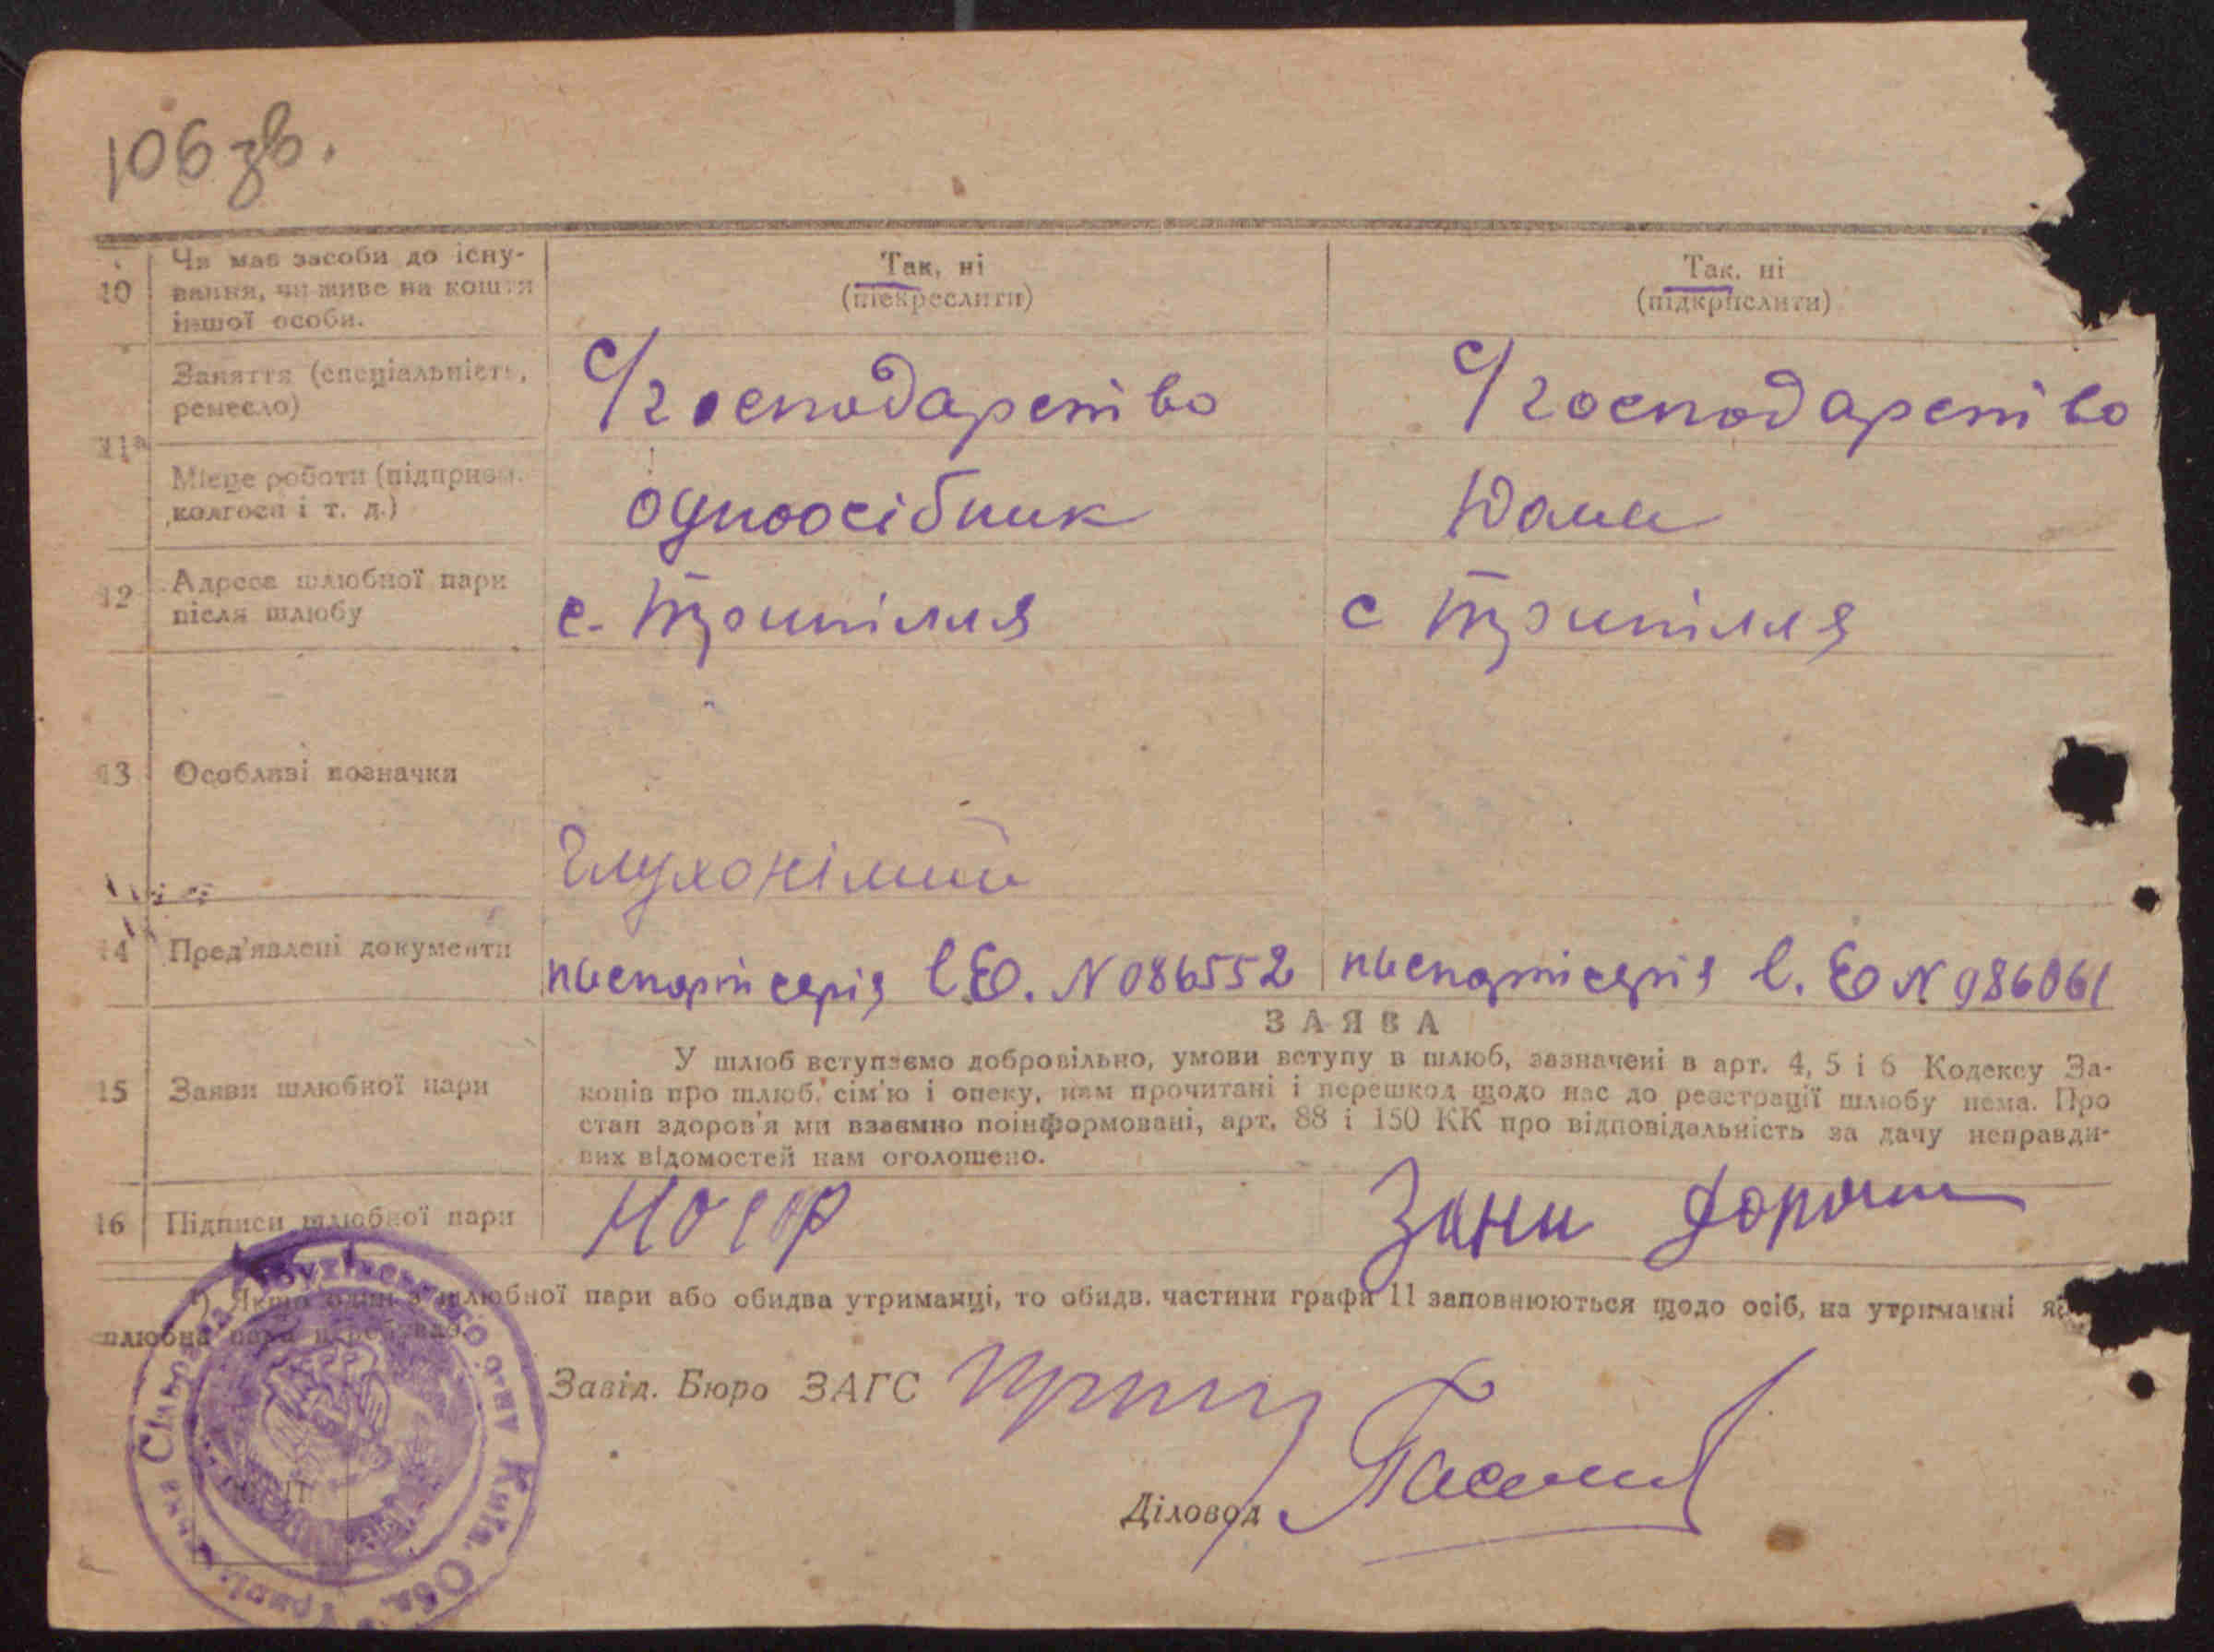 106 зв.
10 Чи має засоби до існу-
вання, чи живе на кошти
іншої особи.
Так, ні
(підкреслити)
Так, ні
(підкрпслити)
11а Заняття (спеціальність,
ремесло)
С/господарство
С/господарство
Місце роботи (підприєм.
колгосп і т. д.)
одноосібник
Дома
12 Адреса шлюбної пари
після шлюбу
с. Трипілля
с Трипілля
13 Особливі позначки
Глухонімий
14 Пред'явлені документи
паспорт серія N 086552
паспорт серія N 986061
ЗАЯВА
15 Заяви шлюбної пари
У шлюб вступаємо добровільно, умови вступу в шлюб, зазначені в арт. 4, 5 і 6 Кодексу За-
конів про шлюб, сім'ю і опеку, нам прочитані і перешкод щодо нас до реєстрації шлюбу нема. Про
стан здоров'я ми взаємно поінформовані, арт. 88 і 150 КК про відповідальність за дачу неправди-
вих відомостей нам оголошено.
16 Підписи шлюбної пари
*) Якщо один з шлюбної пари або обидва утриманці, то обидв. частини графи 11 заповнюються щодо осіб, на утриманні
шлюбна пара перебуває.
Завід. Бюро ЗАГС
Діловод